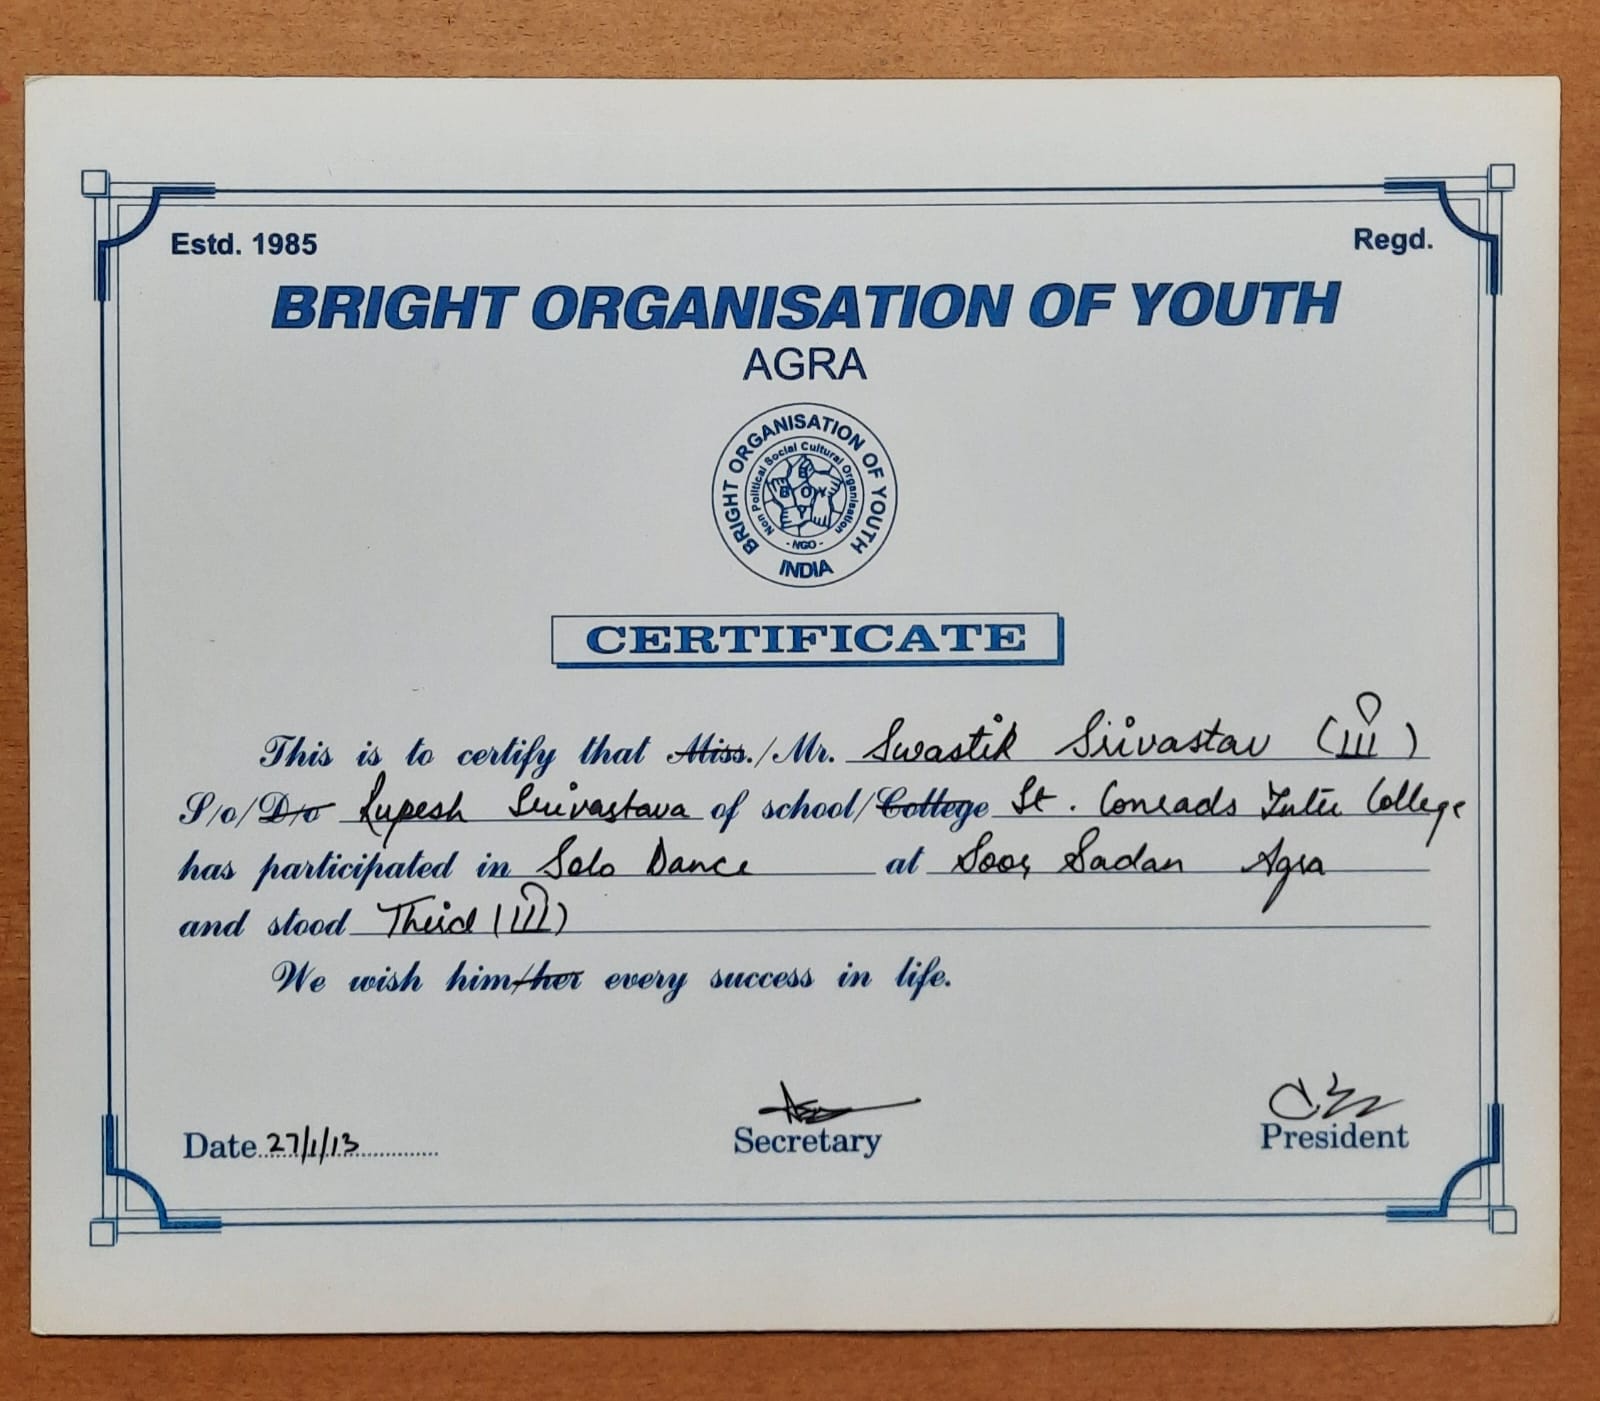 Estd. 1985 Regd.
BRIGHT ORGANISATION OF YOUTH
AGRA
BRIGHT ORGANISATION OF YOUTH
Non Political Social Cultural Organisation
B
B O Y
Y
- NGO -
INDIA
CERTIFICATE
This is to certify that Miss./Mr. Swastik Srivastav (III)
S/o/D/o Rupesh Srivastava of school/College St. Conrads Inter College
has participated in Solo Dance at Soor Sadan Agra
and stood Third (III)
We wish him/her every success in life.
Date 27/1/13 Secretary President